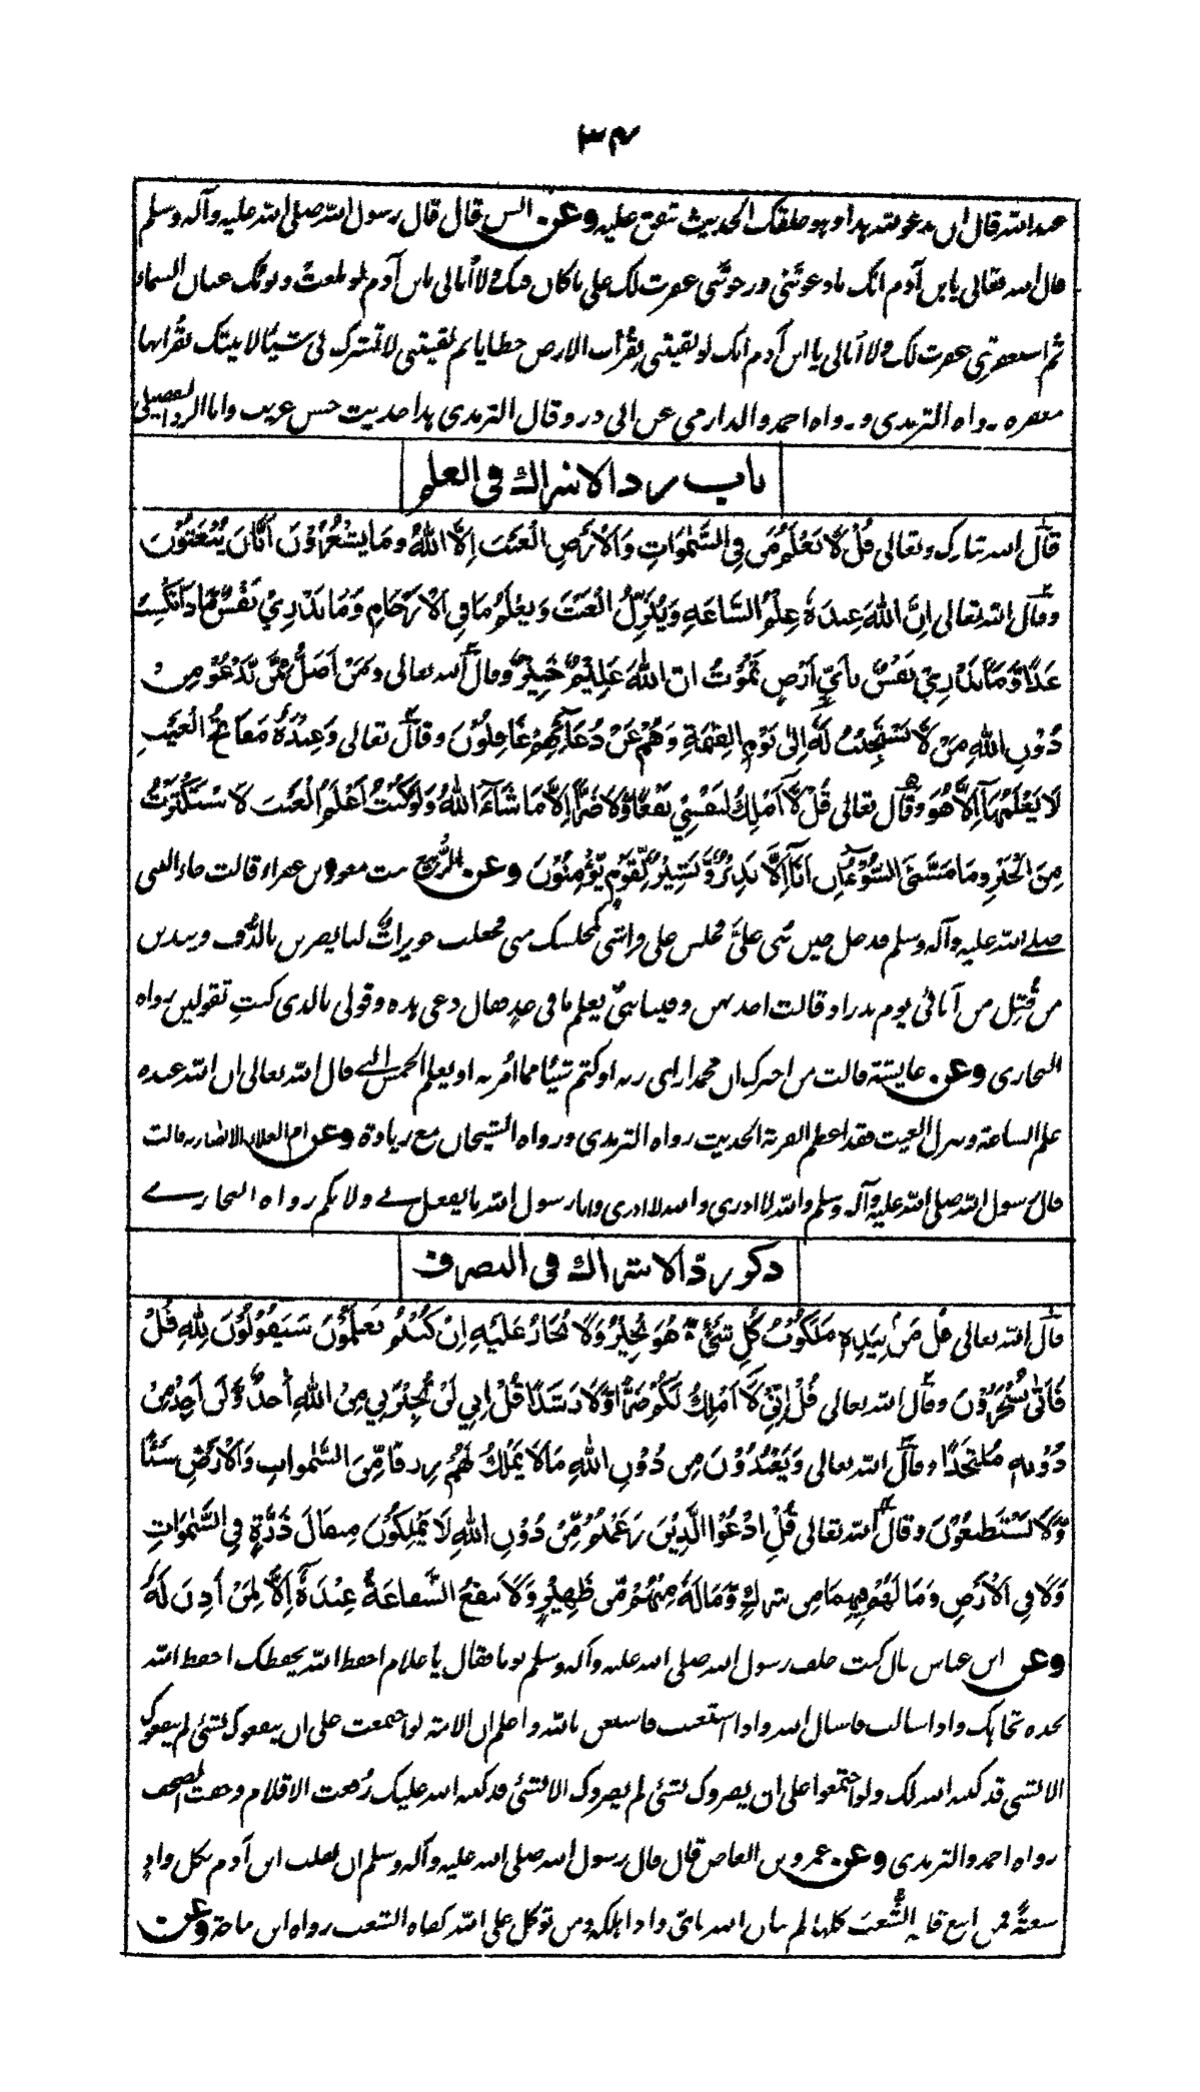 ٣٤
عند الله قال ان تدعو لله ندا وهو خلقك الحديث متفق عليه وعن انس قال قال رسول الله صلى الله عليه وآله وسلم
قال الله تعالى يا بن آدم انك ما دعوتنى ورجوتنى غفرت لك على ما كان فيك ولا أبالى يا بن آدم لو بلغت ذنوبك عنان السماء
ثم استغفرتنى غفرت لك ولا أبالى يا ابن آدم انك لو لقيتنى بقراب الارض خطايا ثم لقيتنى لا تشرك بى شيئا لاتيتك بقرابها
مغفرة رواه الترمذى ورواه احمد والدارمى عن ابى ذر وقال الترمذى هذا حديث حسن غريب واما الرد التفصيلى
باب رد الاشراك فى العلم
قال الله تبارك وتعالى قُلْ لَّا يَعْلَمُ مَن فِى السَّمٰوَاتِ وَالْاَرْضِ الْغَيْبَ اِلَّا اللهُ وَمَا يَشْعُرُوْنَ اَيَّانَ يُبْعَثُوْنَ
وقال الله تعالى اِنَّ اللهَ عِندَهٗ عِلْمُ السَّاعَةِ وَيُنَزِّلُ الْغَيْثَ وَيَعْلَمُ مَا فِى الْاَرْحَامِ وَمَا تَدْرِيْ نَفْسٌ مَّاذَا تَكْسِبُ
غَدًا وَّمَا تَدْرِيْ نَفْسٌ بِاَيِّ اَرْضٍ تَمُوْتُ اِنَّ اللهَ عَلِيْمٌ خَبِيْرٌ وقال الله تعالى وَمَنْ اَضَلُّ مِمَّنْ يَّدْعُوْ مِنْ
دُوْنِ اللهِ مَنْ لَّا يَسْتَجِيْبُ لَهٗ اِلٰى يَوْمِ الْقِيٰمَةِ وَهُمْ عَنْ دُعَآئِهِمْ غَافِلُوْنَ وقال تعالى وَعِنْدَهٗ مَفَاتِحُ الْغَيْبِ
لَا يَعْلَمُهَآ اِلَّا هُوَ وقال تعالى قُلْ لَّآ اَمْلِكُ لِنَفْسِيْ نَفْعًا وَّلَا ضَرًّا اِلَّا مَا شَآءَ اللهُ وَلَوْ كُنْتُ اَعْلَمُ الْغَيْبَ لَاسْتَكْثَرْتُ
مِنَ الْخَيْرِ وَمَا مَسَّنِىَ السُّوْٓءُ اِنْ اَنَا۠ اِلَّا نَذِيْرٌ وَّبَشِيْرٌ لِّقَوْمٍ يُّؤْمِنُوْنَ وعن الرُّبَيِّع بنت معوذ بن عفراء قالت جاء النبى
صلى الله عليه وآله وسلم فدخل حين بُنى علىَّ فجلس على فراشى كمجلسك منى فجعلت جويرياتٌ لنا يضربن بالدُّف ويندبن
من قُتِل من آبائى يوم بدر اذ قالت احدهن وفينا نبىٌّ يعلم ما فى غدٍ فقال دعى هذه وقولى بالذى كنتِ تقولين رواه
البخارى وعن عايشة قالت من اخبرك ان محمدا رأى ربه او كتم شيئا مما أُمر به او يعلم الخمس التى قال الله تعالى ان الله عنده
علم الساعة وينزل الغيث فقد اعظم الفرية الحديث رواه الترمذى ورواه الشيخان مع زيادة وعن ام العلاء الانصارية قالت
قال رسول الله صلى الله عليه وآله وسلم والله لا ادرى والله لا ادرى وانا رسول الله ما يفعل بى ولا بكم رواه البخارى
ذكر ردّ الاشراك فى التصرف
قال الله تعالى قُل مَنْ بِيَدِهٖ مَلَكُوْتُ كُلِّ شَيْءٍ وَّهُوَ يُجِيْرُ وَلَا يُجَارُ عَلَيْهِ اِنْ كُنْتُمْ تَعْلَمُوْنَ سَيَقُوْلُوْنَ لِلّٰهِ قُلْ
فَاَنّٰى تُسْحَرُوْنَ وقال الله تعالى قُلْ اِنِّيْ لَآ اَمْلِكُ لَكُمْ ضَرًّا وَّلَا رَشَدًا قُلْ اِنِّي لَنْ يُّجِيْرَنِي مِنَ اللهِ اَحَدٌ وَّلَنْ اَجِدَ مِنْ
دُوْنِهٖ مُلْتَحَدًا وقال الله تعالى وَيَعْبُدُوْنَ مِن دُوْنِ اللهِ مَا لَا يَمْلِكُ لَهُمْ رِزْقًا مِّنَ السَّمٰوٰتِ وَالْاَرْضِ شَيْئًا
وَّلَا يَسْتَطِيْعُوْنَ وقال الله تعالى قُلِ ادْعُوا الَّذِيْنَ زَعَمْتُمْ مِّنْ دُوْنِ اللهِ لَا يَمْلِكُوْنَ مِثْقَالَ ذَرَّةٍ فِى السَّمٰوَاتِ
وَلَا فِى الْاَرْضِ وَمَا لَهُمْ فِيْهِمَا مِنْ شِرْكٍ وَّمَا لَهٗ مِنْهُمْ مِّنْ ظَهِيْرٍ وَلَا تَنفَعُ الشَّفَاعَةُ عِنْدَهٗٓ اِلَّا لِمَنْ اَذِنَ لَهٗ
وعن ابن عباس قال كنت خلف رسول الله صلى الله عليه وآله وسلم يوما فقال يا غلام احفظ الله يحفظك احفظ الله
تجده تجاهك واذا سالت فاسال الله واذا استعنت فاستعن بالله واعلم ان الامة لو اجتمعت على ان ينفعوك بشئ لم ينفعوك
الا بشئ قد كتبه الله لك ولو اجتمعوا على ان يضروك بشئ لم يضروك الا بشئ قد كتبه الله عليك رُفعت الاقلام وجفت الصحف
رواه احمد والترمذى وعن عمرو بن العاص قال قال رسول الله صلى الله عليه وآله وسلم ان لقلب ابن آدم بكل وادٍ
شعبةٌ فمن اتبع قلبه الشُّعَبَ كلها لم يبال الله باى واد اهلكه ومن توكل على الله كفاه الشعب رواه ابن ماجة وعن